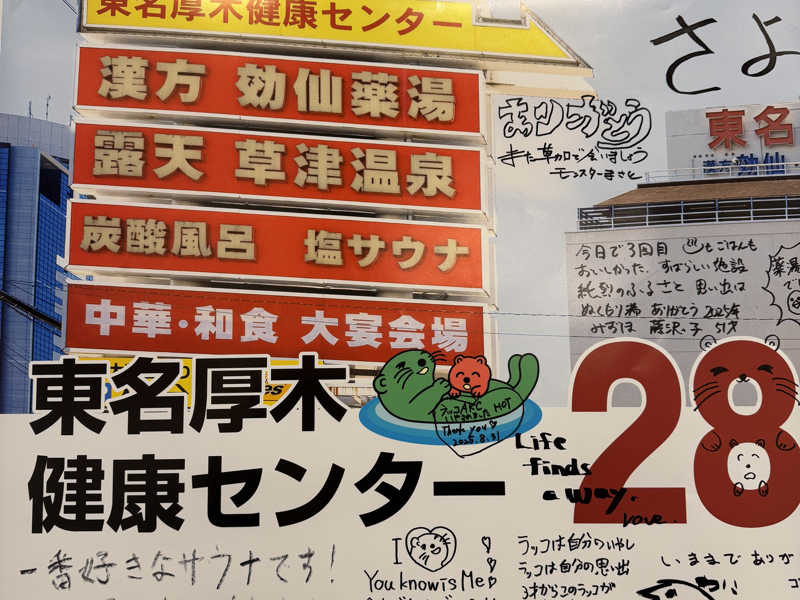 東名厚木健康センター
漢方 効仙薬湯
露天 草津温泉
炭酸風呂 塩サウナ
中華・和食 大宴会場
さよ
ありがとう
また草加で会いましょう
モンスターまさと
東名
効仙
今日で3回目 もごはんも
おいしかった。すばらしい施設
のふるさと 思い出は
ありがとう 2025年
51才
薬湯
で
東名厚木
健康センター
28
HOT
Thank you
2025.8.31
Life
finds
a way.
一番好きなサウナです!
I
You know is Me
ラッコは自分のいやし
ラッコは自分の思い出
3才からこのラッコが
いままでありが